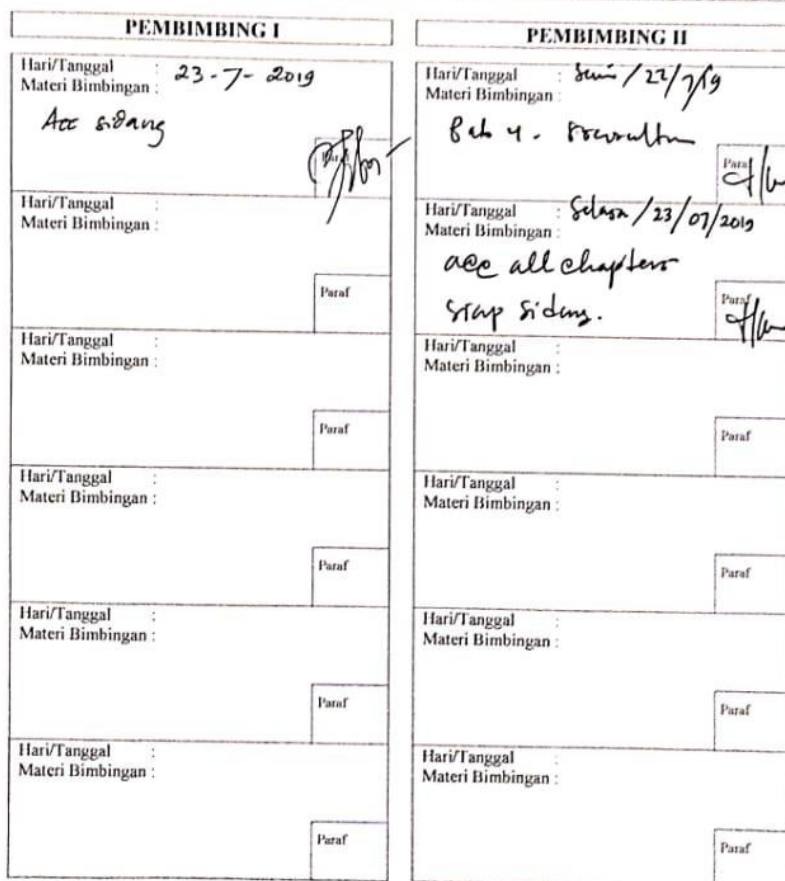 PEMBIMBING I
Hari/Tanggal : 23-7-2019
Materi Bimbingan :
Acc sidang
Hari/Tanggal :
Materi Bimbingan :
Paraf
Hari/Tanggal :
Materi Bimbingan :
Paraf
Hari/Tanggal :
Materi Bimbingan :
Paraf
Hari/Tanggal :
Materi Bimbingan :
Paraf
Hari/Tanggal :
Materi Bimbingan :
Paraf
PEMBIMBING II
Hari/Tanggal : Senin / 22/7/19
Materi Bimbingan :
Bab 4.
Paraf
Hari/Tanggal : Selasa / 23/07/2019
Materi Bimbingan :
acc all chapters
siap sidang.
Paraf
Hari/Tanggal :
Materi Bimbingan :
Paraf
Hari/Tanggal :
Materi Bimbingan :
Paraf
Hari/Tanggal :
Materi Bimbingan :
Paraf
Hari/Tanggal :
Materi Bimbingan :
Paraf